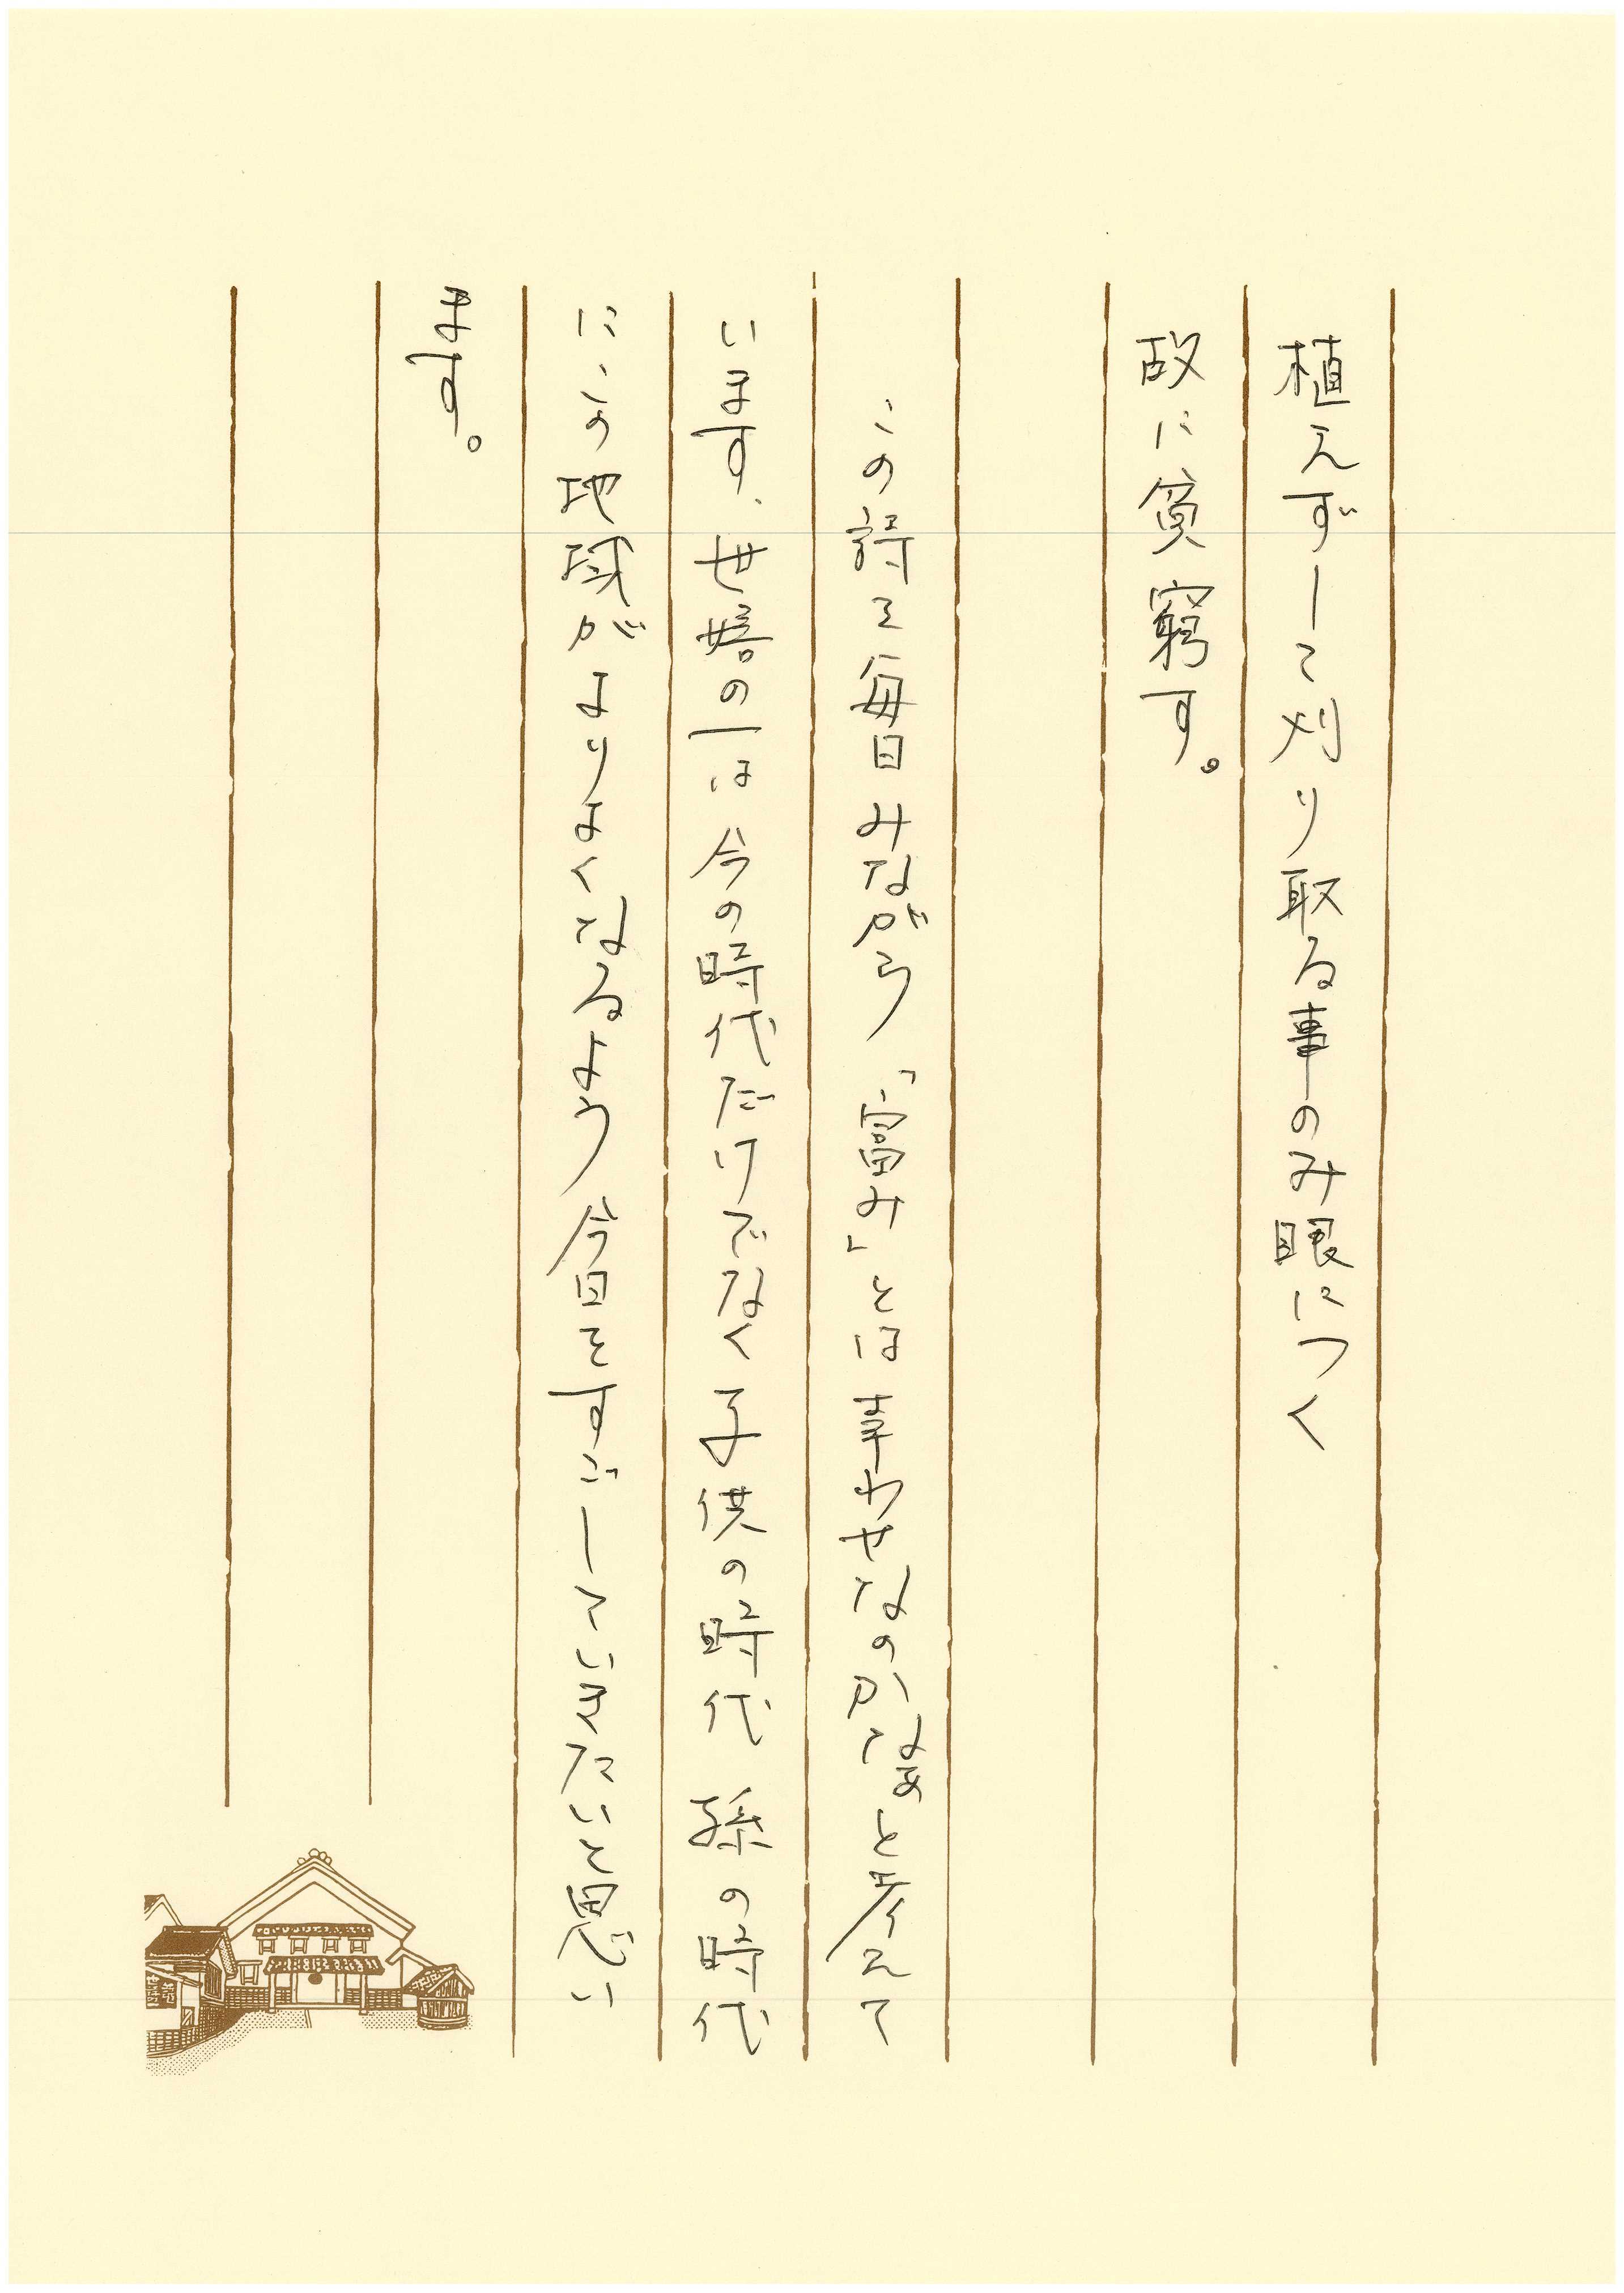 植えずして刈り取る事のみ眼につく
故に貧窮す。
この詩を毎日みながら「富み」とは幸わせなのかなぁと考えて
います、世嬉の一は今の時代だけでなく子供の時代 孫の時代
にこの地域がよりよくなるよう今日をすごしていきたいと思い
ます。